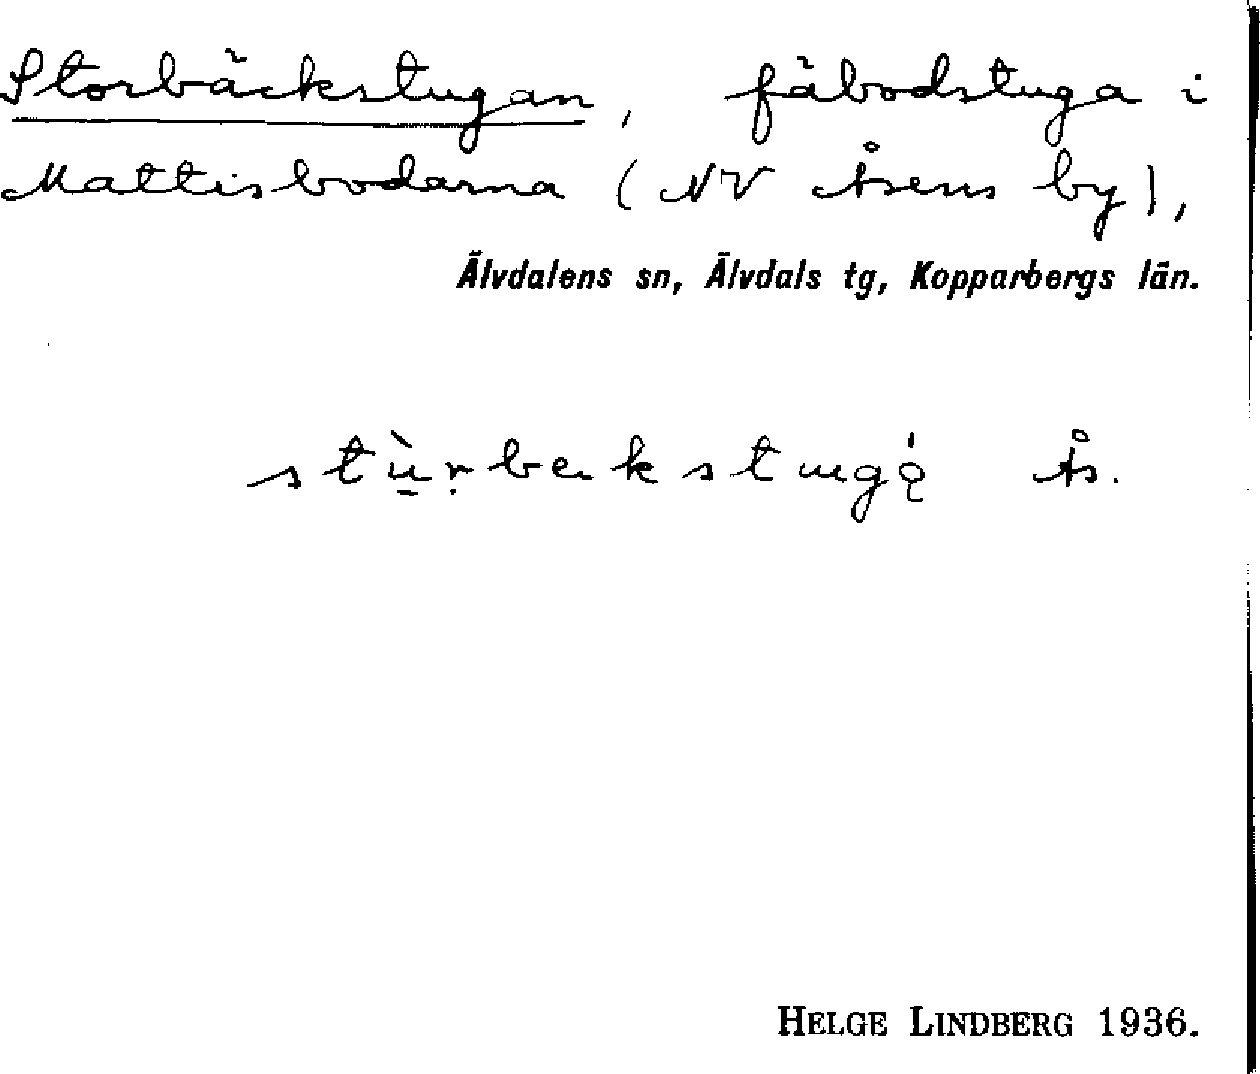 Storbäckstugan, fäbodstuga i
Mattisbodarna (NV Åsens by),
Älvdalens sn, Älvdals tg, Kopparbergs län.
Ås.
HELGE LINDBERG 1936.